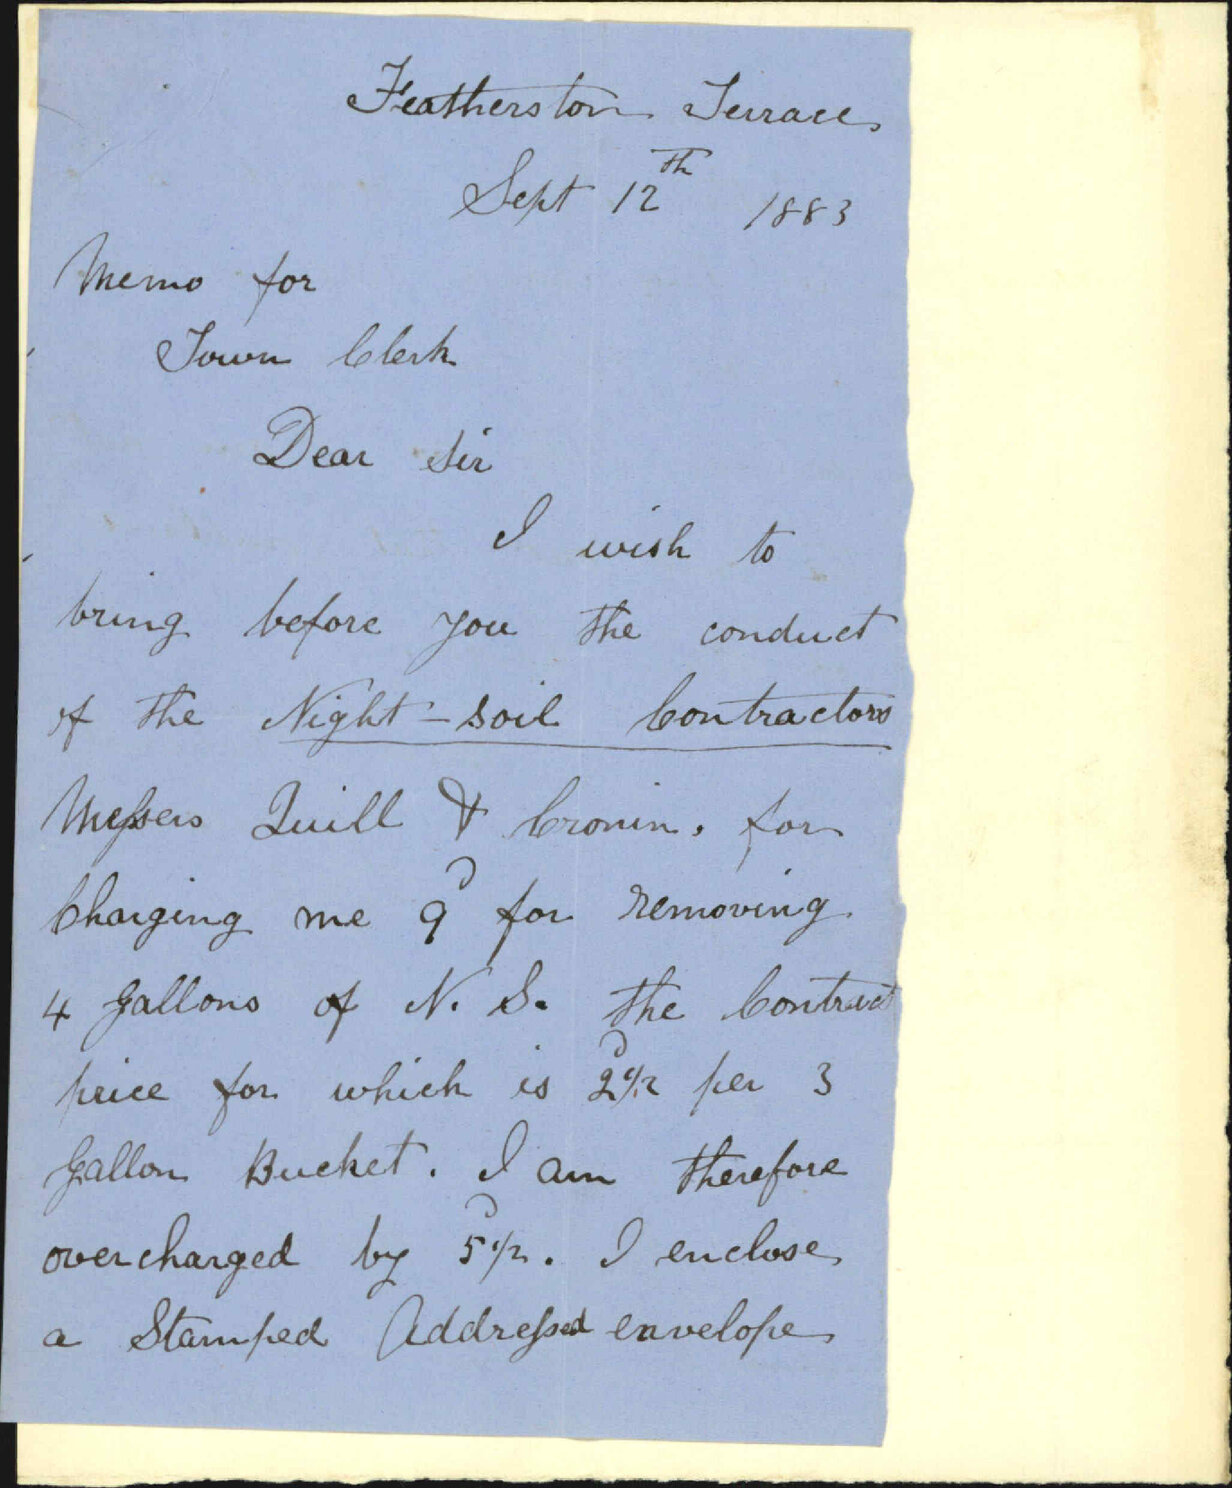 Featherston Terrace
Sept 12th 1883
Memo for
Town Clerk
Dear Sir
I wish to
bring before you the conduct
of the Night-soil Contractors
Messers Quill & Cronin. for
Charging me 9d for removing
4 gallons of N. S. the Contract
price for which is 2d 1/2 per 3
gallon Bucket. I am therefore
overcharged by 5d 1/2. I enclose
a Stamped Addressed envelope